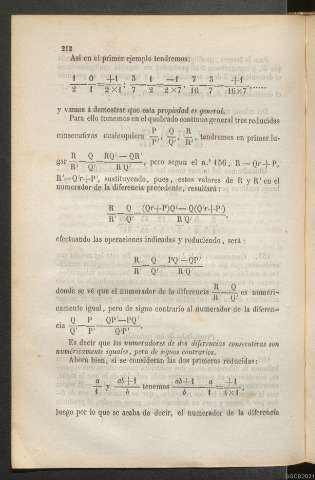 212
Así en el primer ejemplo tendremos:
1/2 − 0/1 = +1/2×1, 3/7 − 1/2 = −1/2×7, 7/16 − 3/7 = +1/16×7 ......
y vamos á demostrar que esta propiedad es general.
Para ello tomemos en el quebrado contínuo general tres reducidas
consecutivas cualesquiera P/P', Q/Q', R/R', tendremos en primer lu-
gar R/R' − Q/Q' = RQ'−QR'/R'Q', pero segun el n.° 156, R=Qr+P,
R'=Q'r+P', sustituyendo, pues, estos valores de R y R' en el
numerador de la diferencia precedente, resultará:
R/R' − Q/Q' = (Qr+P)Q'−Q(Q'r+P')/R'Q',
efectuando las operaciones indicadas y reduciendo, será:
R/R' − Q/Q' = PQ'−QP'/R'Q'
donde se vé que el numerador de la diferencia R/R' − Q/Q' es numéri-
camente igual, pero de signo contrario al numerador de la diferen-
cia Q/Q' − P/P' = QP'−PQ'/Q'P'.
Es decir que los numeradores de dos diferencias consecutivas son
numéricamente iguales, pero de signos contrarios.
Ahora bien, si se consideran las dos primeras reducidas:
a/1 y ab+1/b tenemos ab+1/b − a/1 = +1/b×1,
luego por lo que se acaba de decir, el numerador de la diferencia